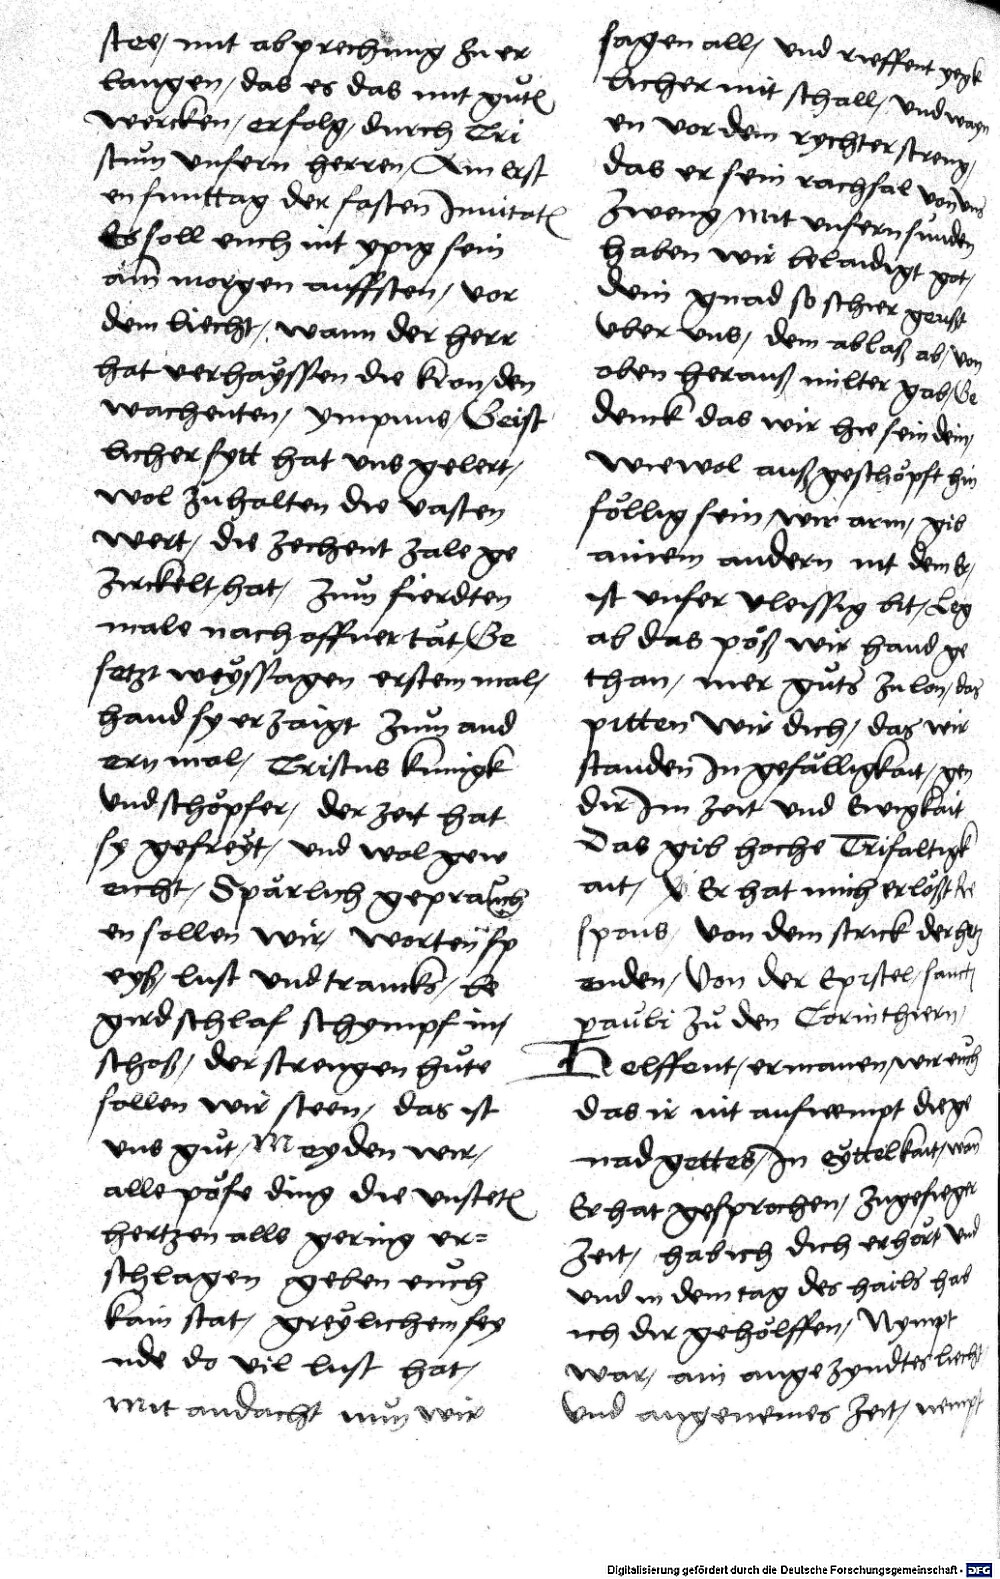 stee, mit abprechung zu er
langen, das es das mit gůtē
wercken, erfolg, durch Cri
stum vnsern herren, Am Erst
en sunttag der fasten Inuitatē
Es soll euch nit ypig sein
am morgen auffsten, vor
dem liecht, wann der herr
hat verhaÿssen die kron, den
wachenten, ympnus, Geist
licher sytt hat vns gelert,
wol zuhalten die vasten
wert, die zechent zale ge
zirckelt hat, zum fierdten
male nach offner tat, Ge
setzt weÿssagen erstem mal,
hand sy erzaigt zum and
ern mal, Cristus künigk
vnd schöpfer, der zeit hat
sy gefreÿt, vnd wol gew
eicht, Spärlich geprauch
en sollen wir, worten sp
eyß, lust vnd trancks, be
gird schlaf schympf in,
schoß, der strengen hůte
sollen wir steen, das ist
vns gůt, Meyden wir,
alle pöse ding die vnstetē
hertzen alle gering er=
schlagen geben euch
kain stat, greÿlichem fey
nde do vil lust hat,
Mit andacht nun wir
sagen all, vnd rieffent yegk
licher mit schall, vnd wayn
en vor dem rychter streng,
das er sein rachsal von vns
zweng, Mit vnsern sunden
haben wir belaidigt got,
dein gnad so schier geust
vber vns, dem ablaß ab, von
oben herauß milter gab, Ge
denck das wir hie sein dein,
wiewol außgeschöpft hin
föllig sein, wir arm, gib
ainem andern nit dem Er,
ist vnser vleissig bit, Leg
ab das pöß wir hand ge
than, mer gůts zu lon, das
pitten wir dich, das wir
standen In gefälligkait, gen
dir Im zeit vnd Ewigkait
Das gib hoche Trifaltigk
ait, V Er hat mich erlößt Re
spons von dem strick der hetz
enden, Von der Epistel, sanct
pauli zů den Corinthiern,
Helffent, ermanen, wir euch
das ir nit aufnempt die ge
nad gottes, In eÿttelkait, wan
Er hat gesprochen, zugefieger
zeit, hab ich dich erhört vnd
vnd in dem tag des hails hab
ich dir geholffen, Nympt
war, ain angezyndtes liecht
vnd angenemes zeit, nempt
Digitalisierung gefördert durch die Deutsche Forschungsgemeinschaft - DFG